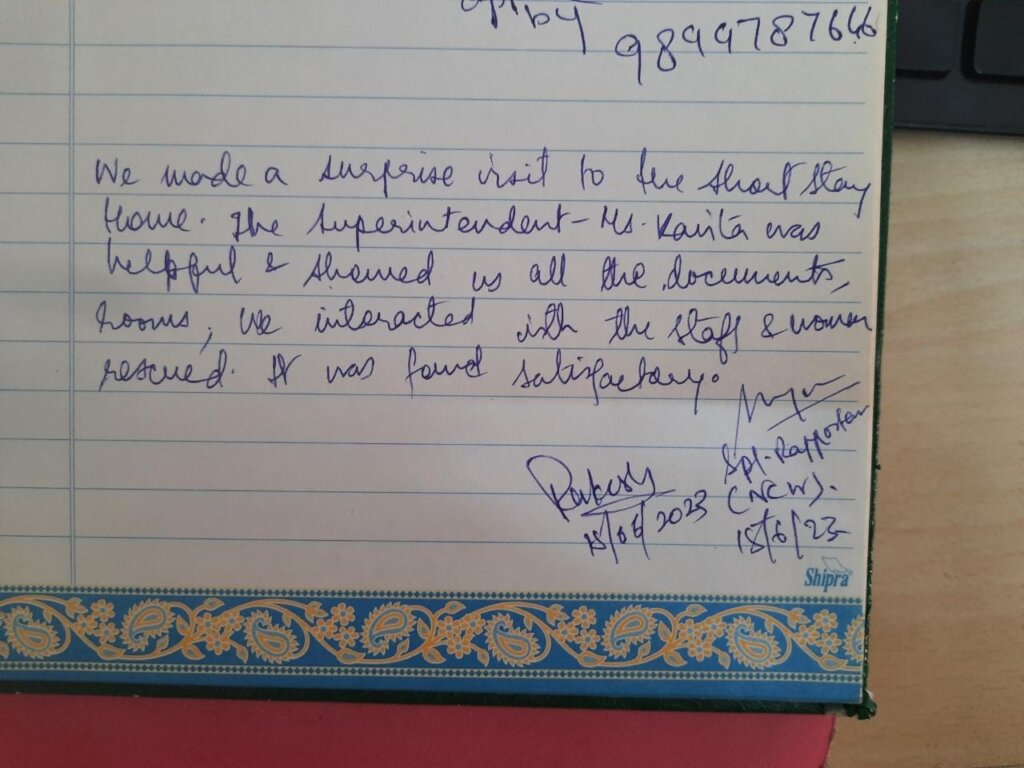 by
9899787666
We made a surprise visit to the Short Stay
Home. The Superintendent - Ms. Kavita was
helpful & showed us all the documents,
rooms, We interacted with the staff & women
rescued. It was found satisfactory.
Rakesh
Spl. Rapporteur
(NCW).
15/06/2023
15/6/23
Shipra